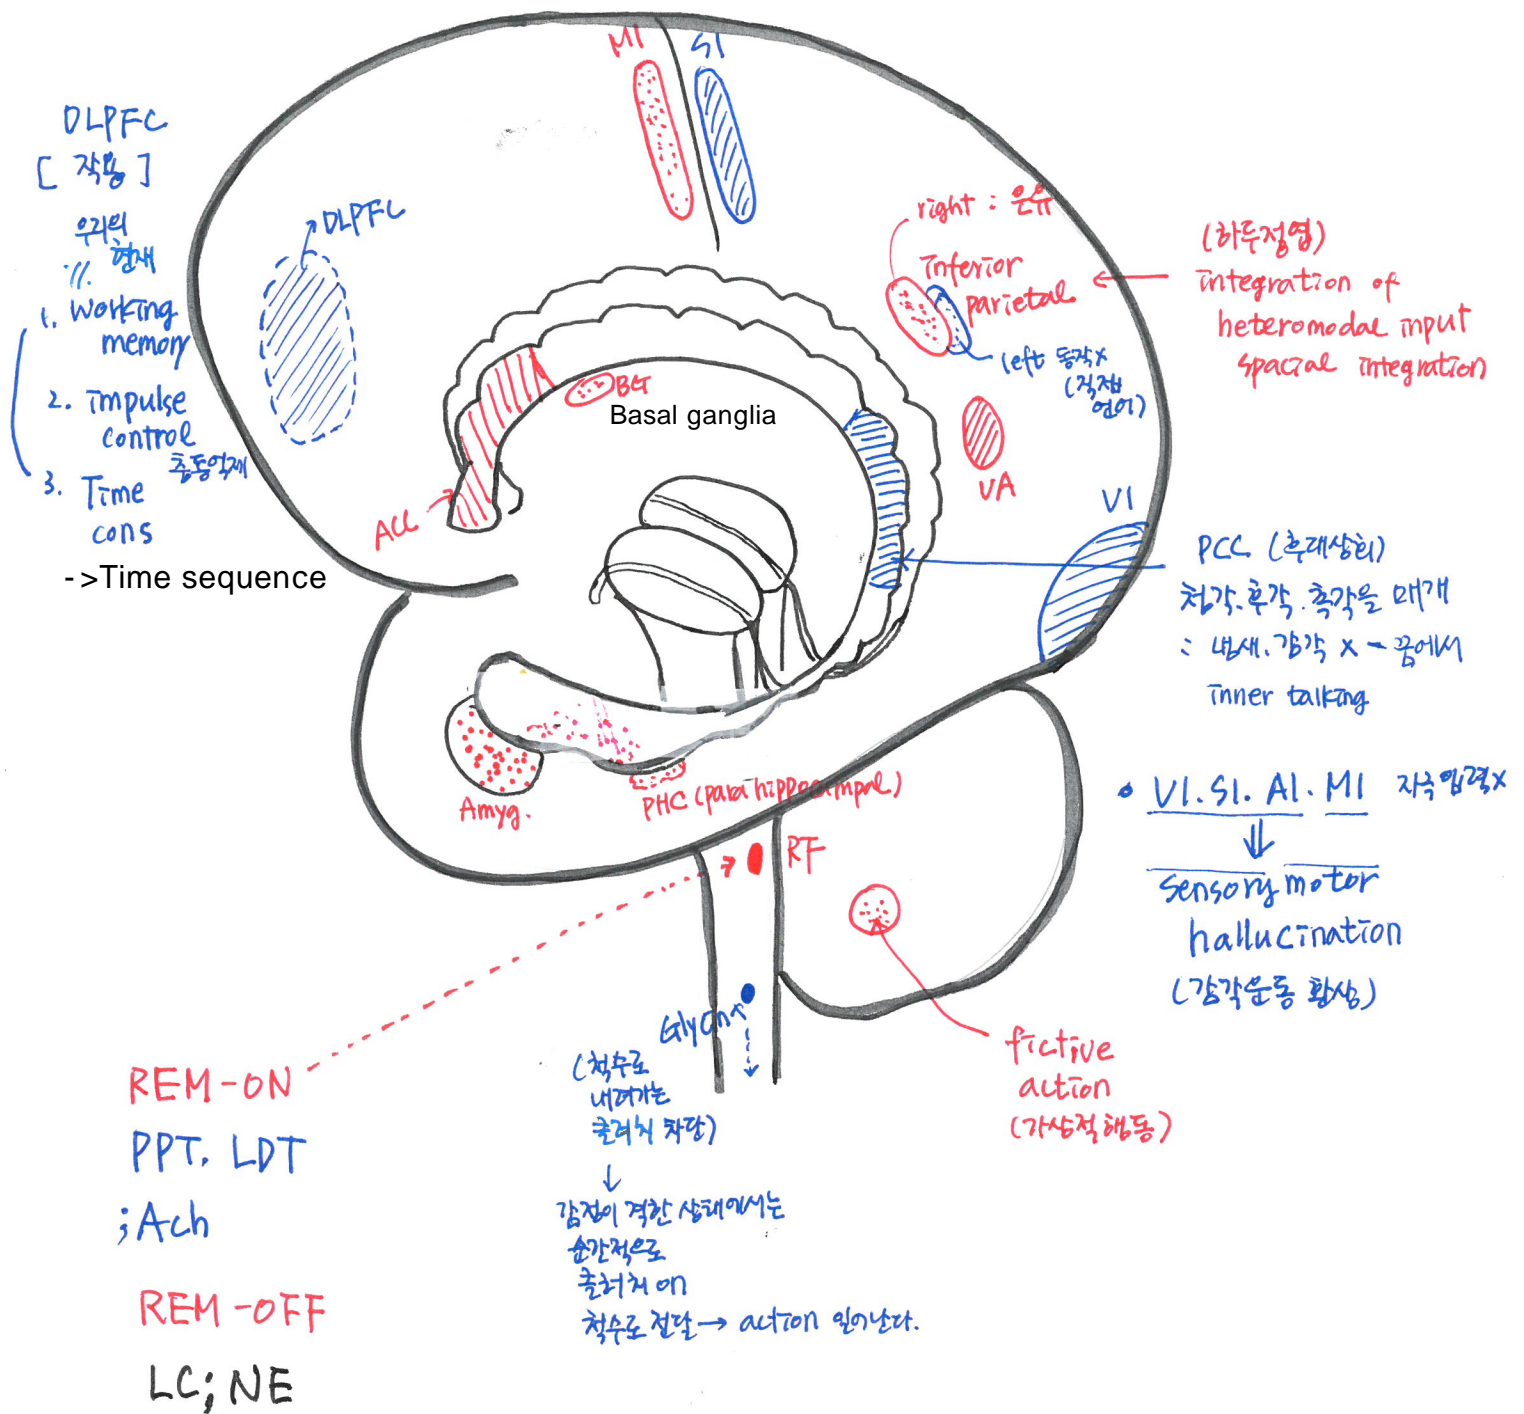 MI
SI
DLPFC
[ 작용 ]
우리의
현재
1. Working
memory
2. impulse
control
충동억제
3. Time
cons
->Time sequence
DLPFC
right : 은유
inferior
parietal
left 동작x
(직접
언어)
(하두정엽)
integration of
heteromodal input
spacial integration
BG
Basal ganglia
ACC
VA
VI
PCC (후대상회)
청각.후각.촉각을 매개
: 냄새.감각 x - 꿈에서
inner talking
Amyg.
PHC (para hippocampal)
RF
• VI. SI. AI. MI 자극입력x
⇓
sensory motor
hallucination
(감각운동 환상)
Glycin
(척수로
내려가는
출력이 차단)
↓
감정이 격한 상태에서는
순간적으로
on
척수로 전달→ action 일어난다.
fictive
action
(가상적행동)
REM-ON
PPT. LDT
;Ach
REM-OFF
LC;NE